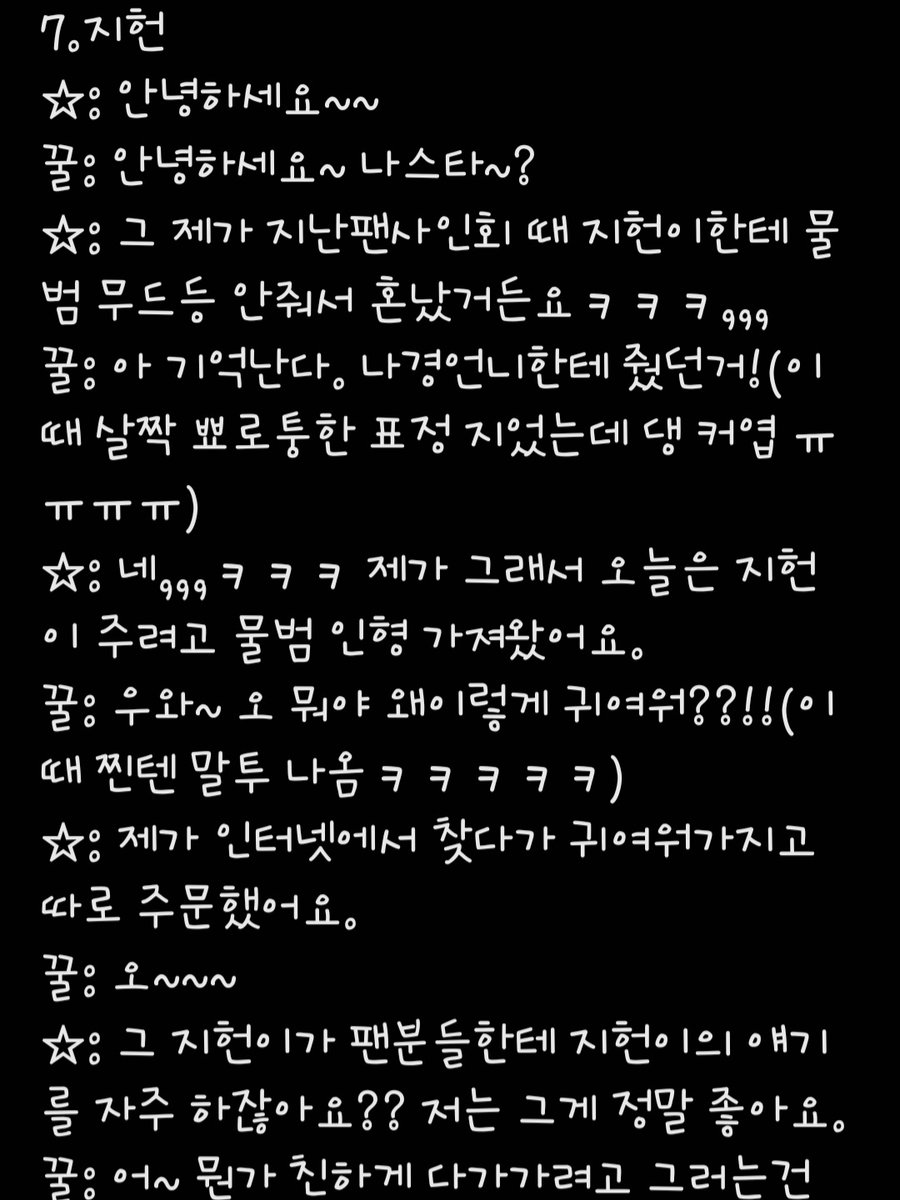 7.지헌
☆: 안녕하세요~~
꿀: 안녕하세요~ 나스타~?
☆: 그 제가 지난팬사인회 때 지헌이한테 물
범 무드등 안줘서 혼났거든요 ㅋ ㅋ ㅋ ,,,
꿀: 아 기억난다. 나경언니한테 줬던거!(이
때 살짝 뾰로퉁한 표정 지었는데 댕 커엽 ㅠ
ㅠ ㅠ ㅠ)
☆: 네,,,ㅋ ㅋ ㅋ 제가 그래서 오늘은 지헌
이 주려고 물범 인형 가져왔어요.
꿀: 우와~ 오 뭐야 왜이렇게 귀여워??!!(이
때 찐텐 말투 나옴 ㅋ ㅋ ㅋ ㅋ ㅋ)
☆: 제가 인터넷에서 찾다가 귀여워가지고
따로 주문했어요.
꿀: 오~~~
☆: 그 지헌이가 팬분들한테 지헌이의 얘기
를 자주 하잖아요?? 저는 그게 정말 좋아요.
꿀: 어~ 뭔가 친하게 다가가려고 그러는건